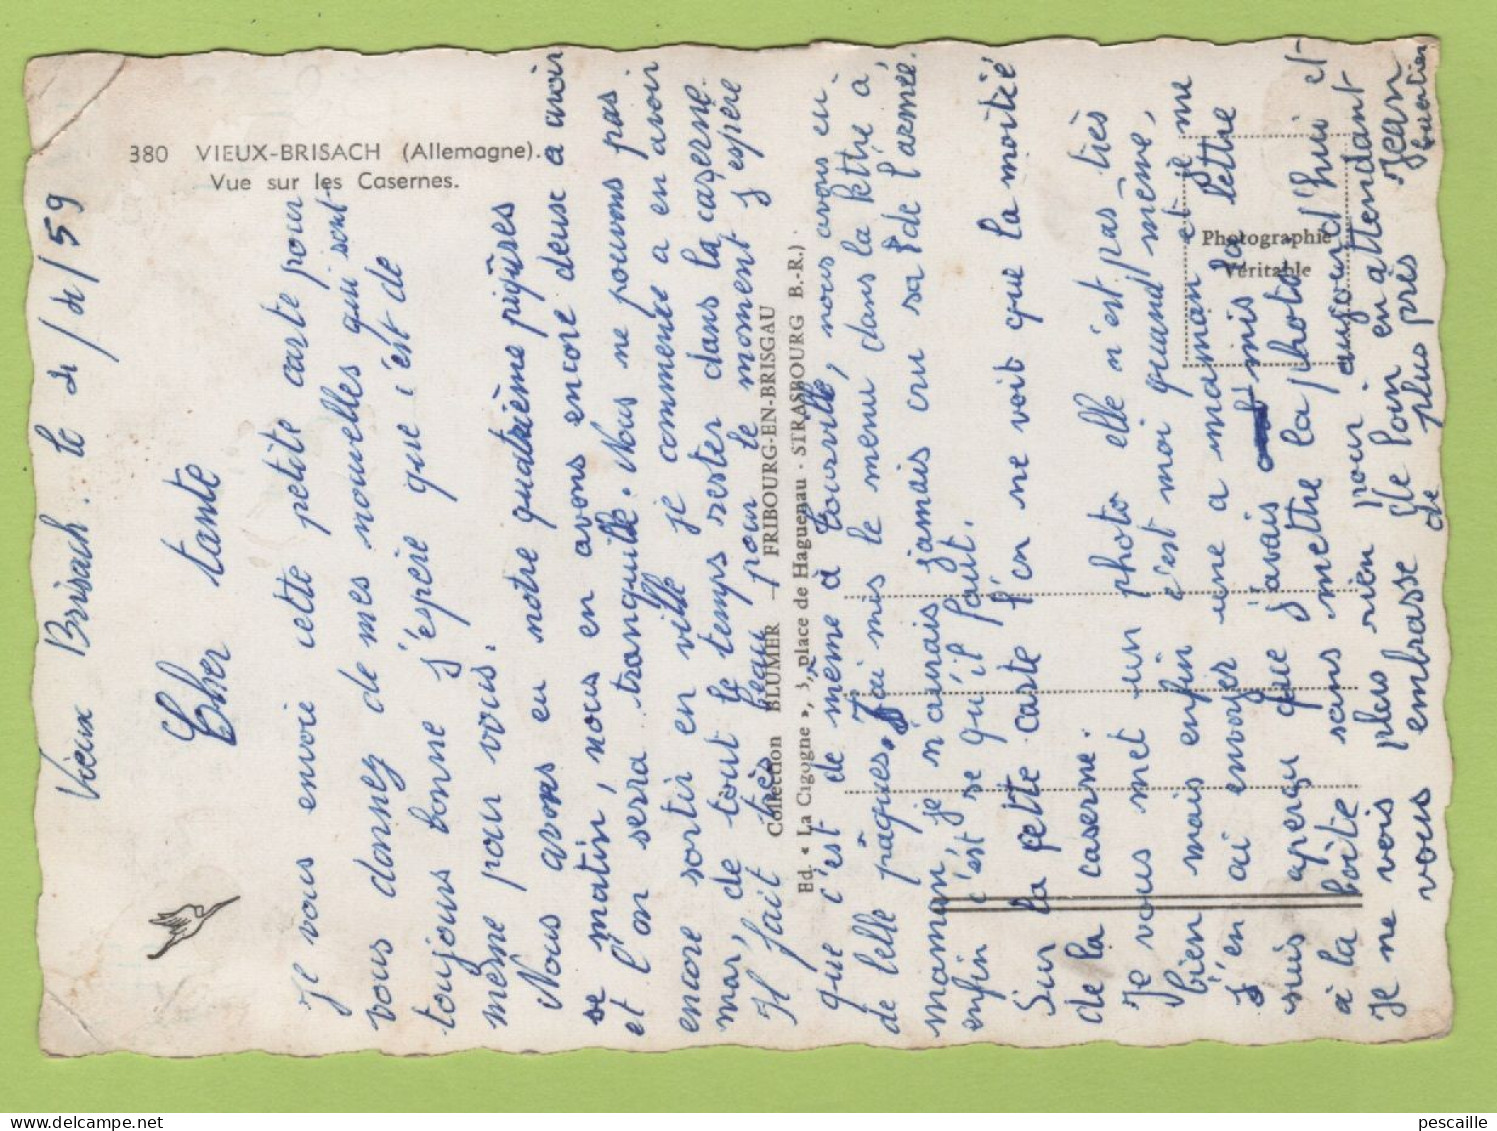 380 VIEUX-BRISACH (Allemagne).
Vue sur les Casernes.
Collection BLUMER — FRIBOURG-EN-BRISGAU
Ed. « La Cigogne », 3, place de Haguenau - STRASBOURG B.-R.)
Photographie
Véritable
Vieux Brisach. le 2/4/59
Cher tante
Je vous envoie cette petite carte pour
vous donnez de mes nouvelles qui sont
toujours bonne j'espère que c'est de
même pour vous.
Nous avons eu notre quatrième piqûres
se matin, nous en avons encore deux a avoir
et l'on serra tranquille. Nous ne pouvons pas
encore sortir en ville je commence a en avoir
mar, de tout le temps rester dans la caserne.
Il fait très beau pour le moment j'espère
que c'est de même à Tourville, nous avons eu
de lelle pâques. J'ai mis le menu dans la lettre à
maman, je n'aurais jamais cru sa de l'armée.
enfin c'est se qu'il faut.
Sur la petite carte l'on ne voit que la moitié
de la caserne.
Je vous met un photo elle n'est pas très
bien mais enfin c'est moi quand même,
j'en ai envoyer une a maman et je me
suis aperçu que j'avais mis la lettre
à la boite sans mettre la photo.
Je ne vois plus rien pour aujourd'hui et
vous embrasse de loin en attendant
de plus près Jean
pescaille